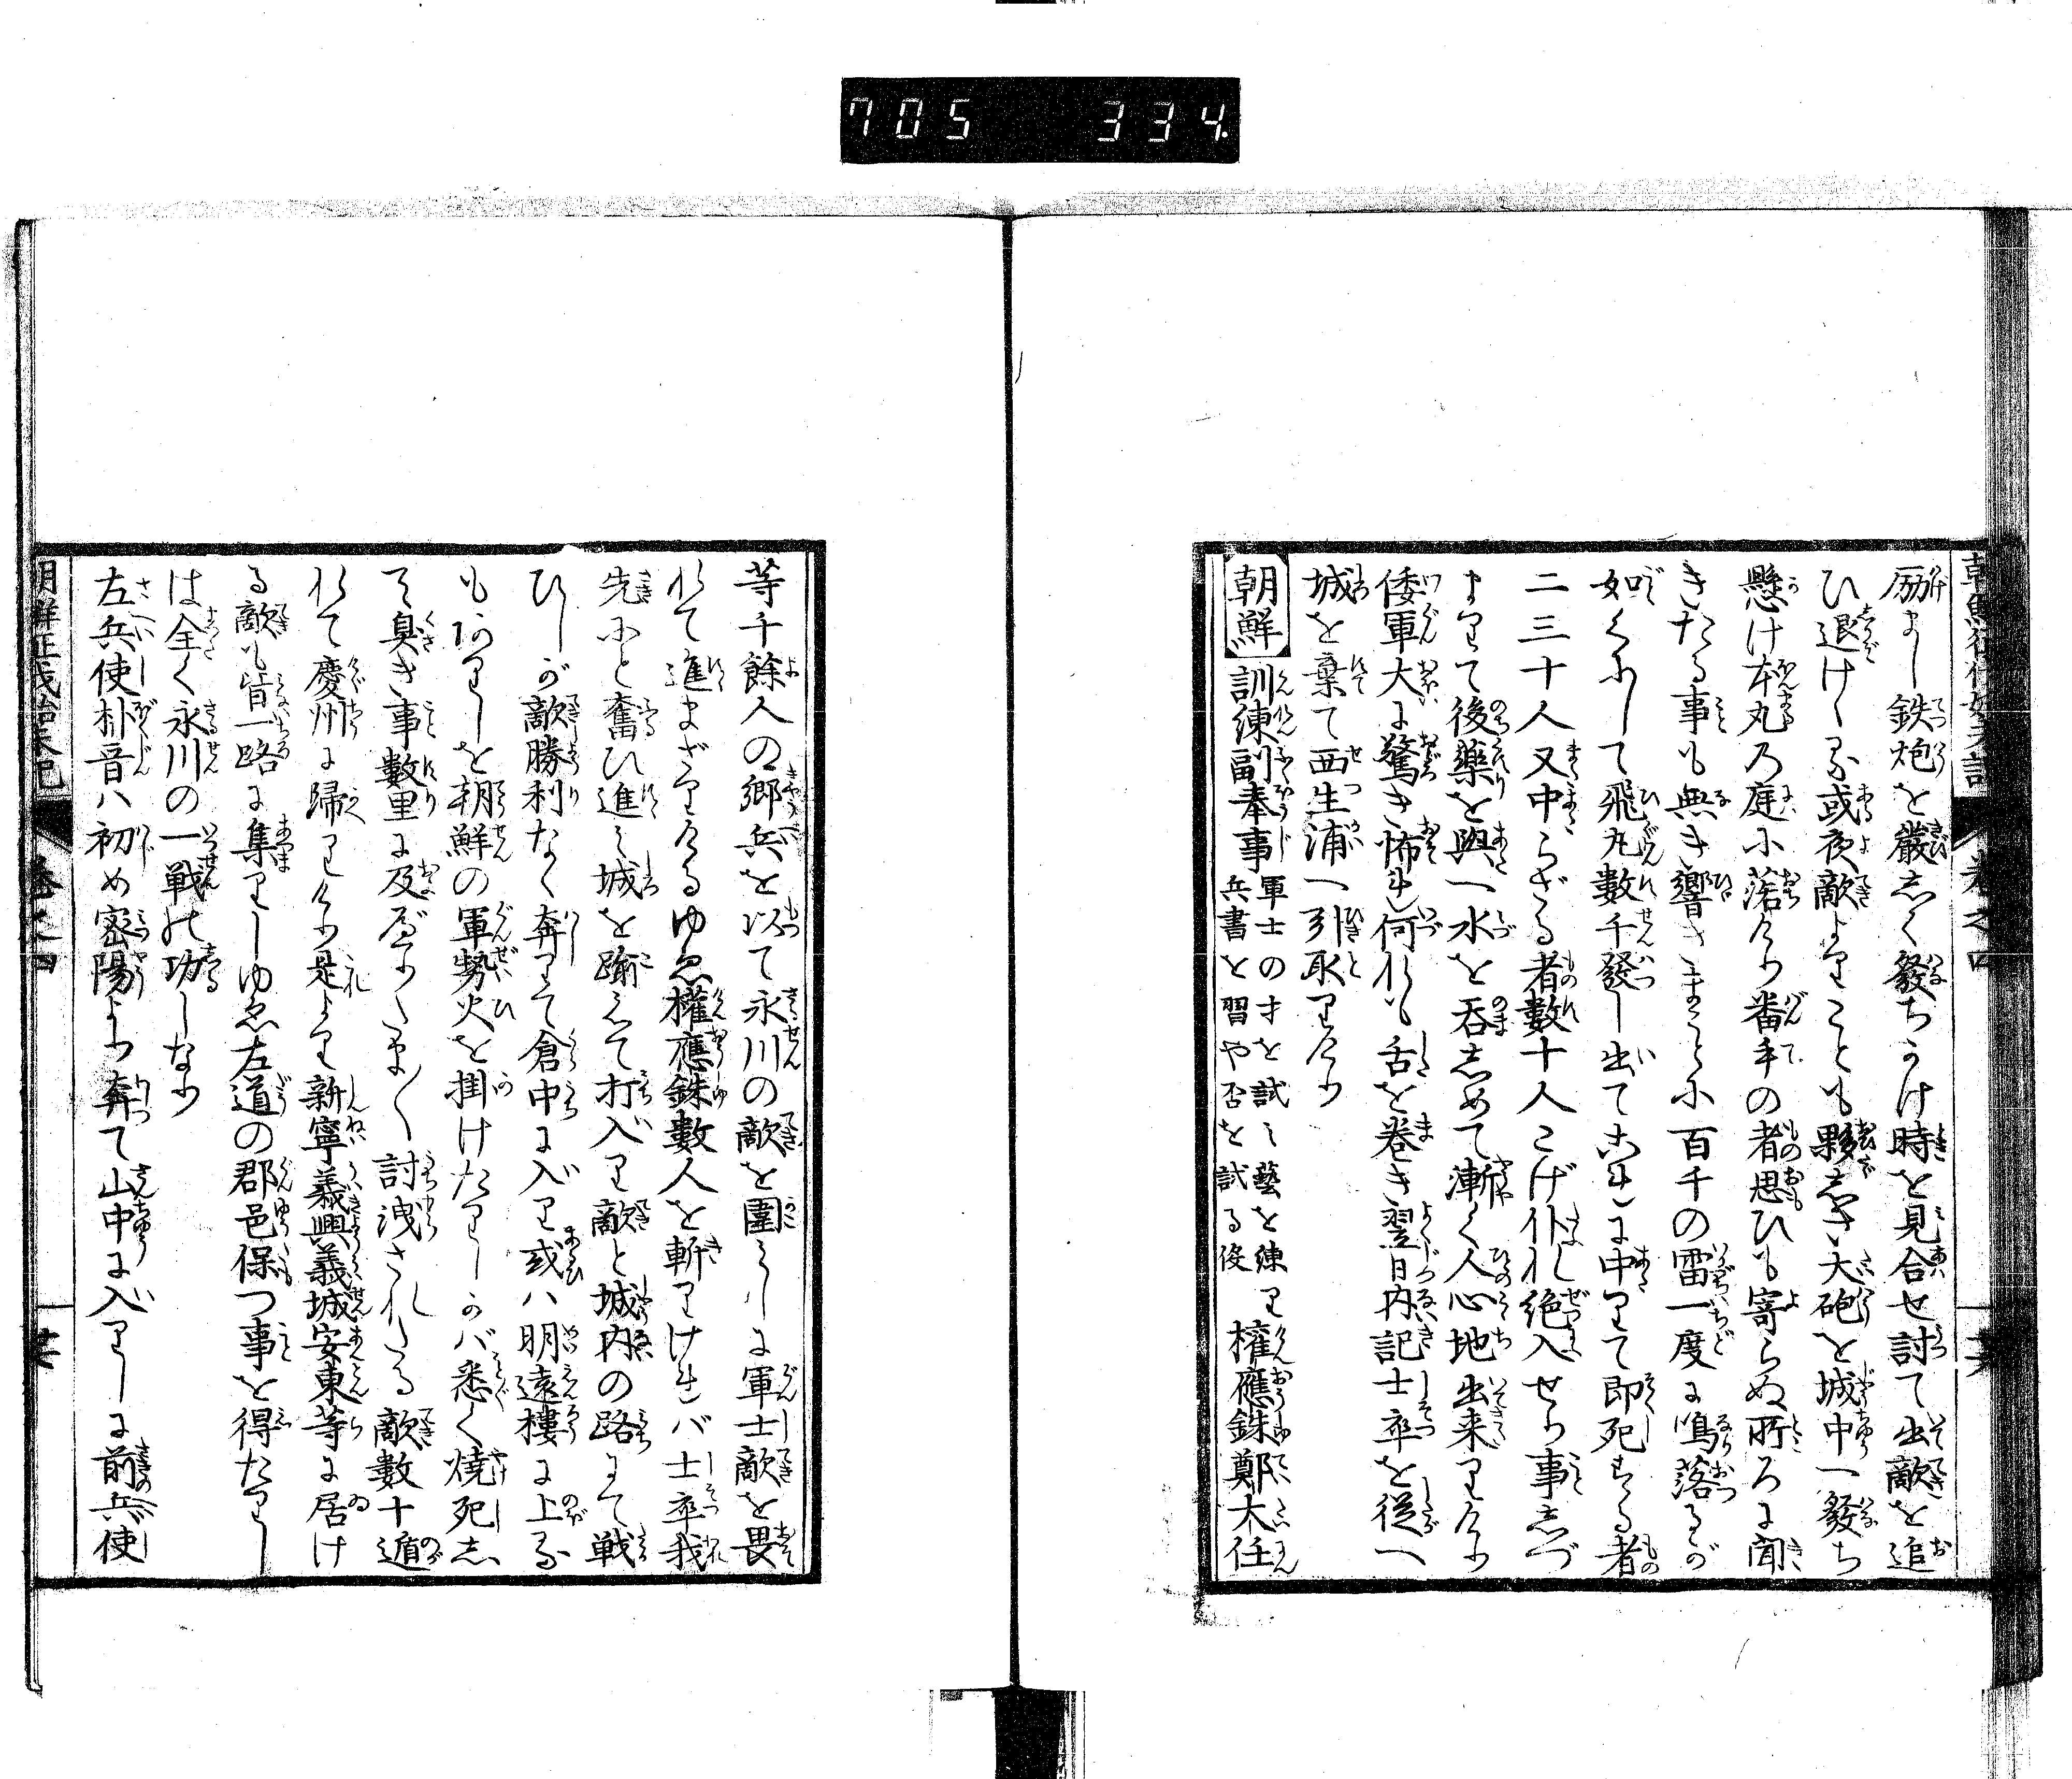 705 334
朝鮮征伐始末記 巻之四
励まし鉄炮を嚴しく發ちかけ時を見合せ討て出敵を追
ひ退けくる或夜敵よりことも夥しき大砲を城中へ發ち
懸け本丸の庭に落ちけり番手の者思ひも寄らぬ所ろに聞
きたる事も無き響きまことに百千の雷一度に鳴落るが
如くにして飛丸數千發し出てこれに中りて即死する者
二三十人又中らざる者數十人こげ仆れし絶入せり事しづ
まりて後藥を與へ水を呑しめて漸く人心地出来りけり
倭軍大に驚き怖れ何れも舌を巻き翌日内記士卒を従へ
城を棄て西生浦へ引取りけり
朝鮮 訓練副奉事 軍士の才を試み藝を練り兵書を習や否を試る役 權應銖鄭大任
等千餘人の郷兵を以て永川の敵を圍みしに軍士敵を畏
れて進まざりけるゆゑ權應銖數人を斬りければ士卒我
先にと奮ひ進み城を踰えて打入り敵と城内の路にて戦
ひしが敵勝利なく奔りて倉中に入り或ハ明遠樓に上る
もありしを朝鮮の軍勢火を掛けたりしかバ悉く燒死し
て臭き事數里に及びけりたま〱討洩されたる敵數十遁
れて慶州に歸りけり是より新寧義興義城安東等に居け
る敵も皆一路に集りしゆゑ左道の郡邑保つ事を得たりし
は全く永川の一戦の功しなり
左兵使朴晋ハ初め密陽より奔て山中に入りしに前兵使
朝鮮征伐始末記 巻之四